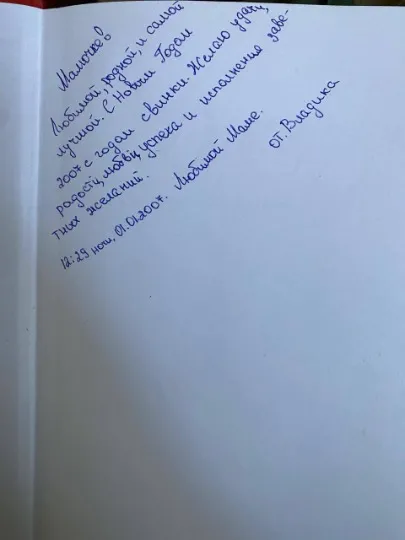 Мамочке
Любимой, родной, и самой
лучшей. С Новым Годом
2007 с годом свинки. Желаю удачи,
радости, любви, успеха и исполнение заве-
тных желаний.
12:29 ночи, 01.01.2007. Любимой Маме.
от. Владика